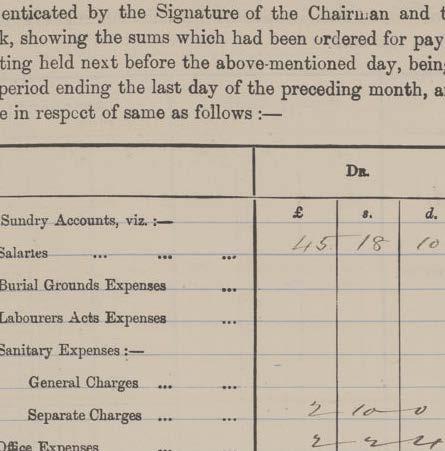 enticated by the Signature of the Chairman and t
k, showing the sums which had been ordered for pay
ting held next before the above-mentioned day, being
period ending the last day of the preceding month, a
e in respect of same as follows :—
DR.
Sundry Accounts, viz. :— £ s. d.
Salaries ... ... ... 45 18 10
Burial Grounds Expenses ...
Labourers Acts Expenses ...
Sanitary Expenses :—
General Charges ... ...
Separate Charges ... ... 2 10 0
Office Expenses ... 2 2 4